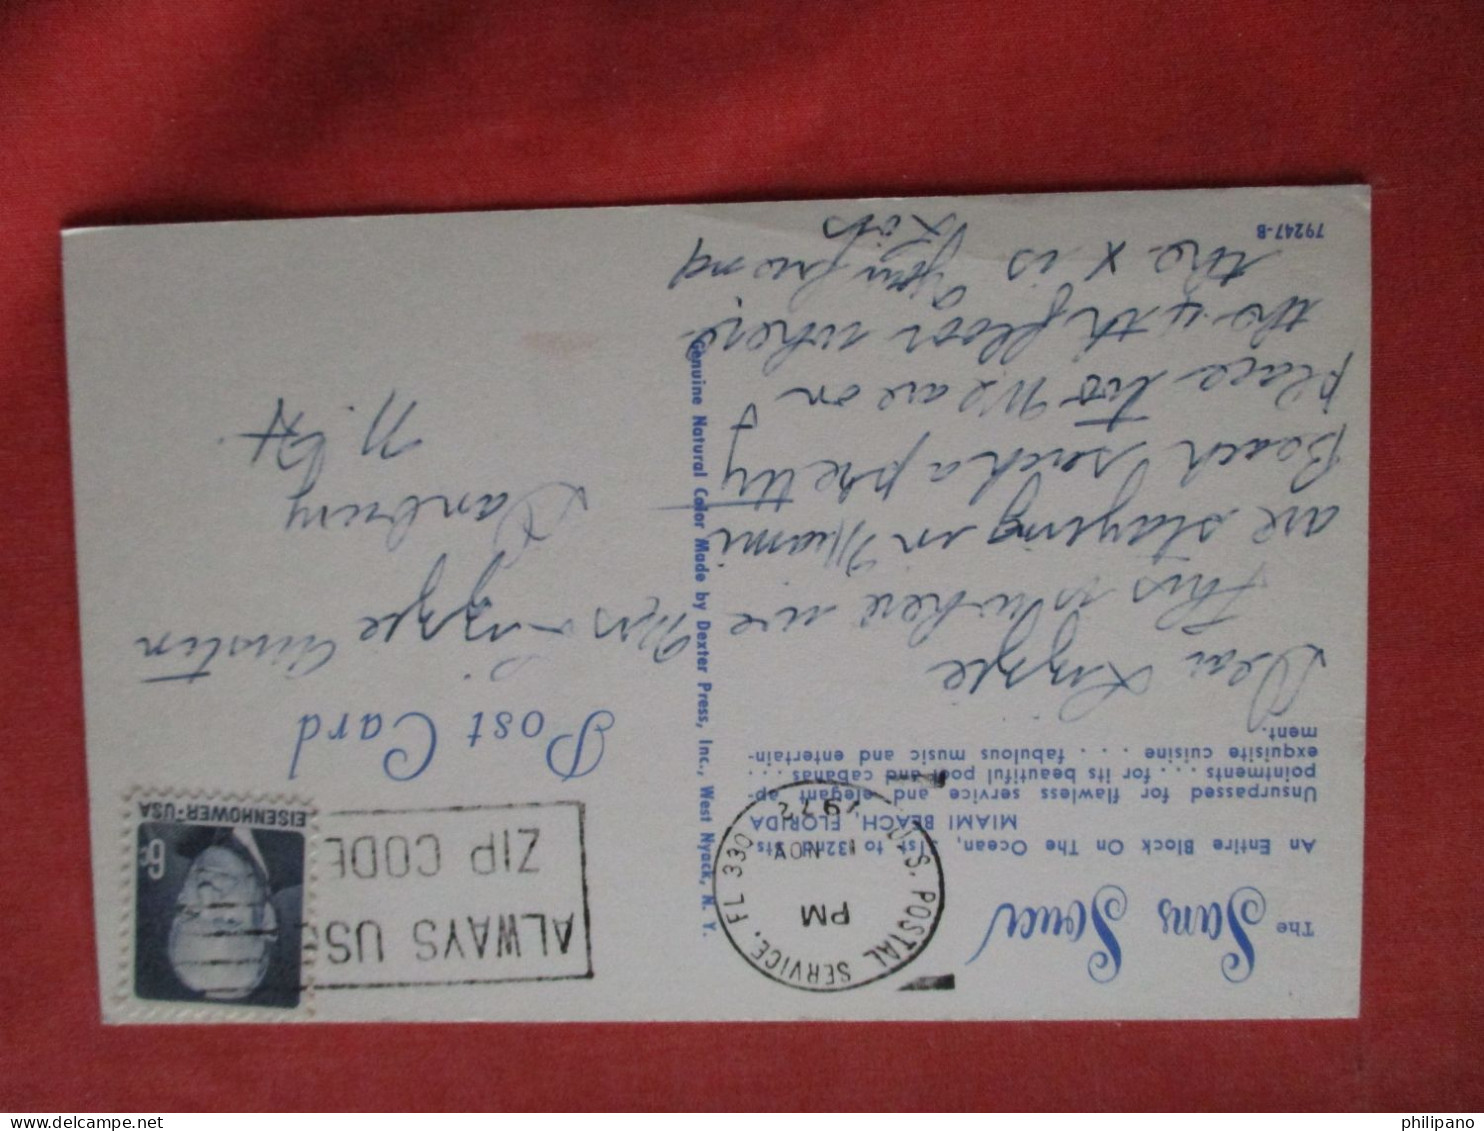 The Sans Souci
An Entire Block On The Ocean, 31st to 32nd Sts.
MIAMI BEACH, FLORIDA
Unsurpassed for flawless service and elegant ap-
pointments . . . for its beautiful pool and cabanas . . .
exquisite cuisine . . . fabulous music and entertain-
ment.
Dear Lizzye
This is where we
are staying in Miami
Beach such a pretty
place too We are on
the 4th floor where
the x is Your friend
79247-B
Genuine Natural Color Made by Dexter Press, Inc., West Nyack, N. Y.
U.S. POSTAL SERVICE, FL 330
PM
1 NOV
1972
ALWAYS USE
ZIP CODE
EISENHOWER·USA
6c
Post Card
Mrs Lizzye Austin
Danbury
N.H.
philipano